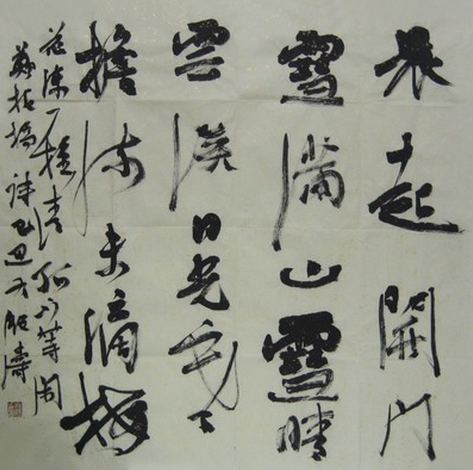 晨起開門
雪滿山雪晴
雲淡日光寒
檐流未滴梅
花凍一種清孤不等閑
鄭板橋詩